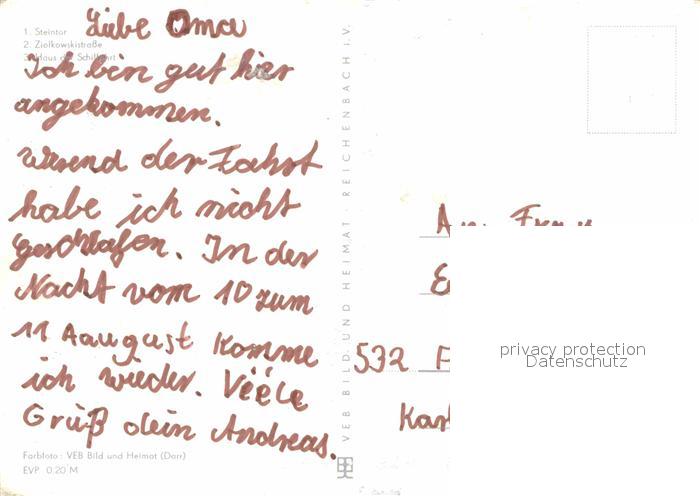 1. Steintor
2. Ziolkowskistraße
Liebe Oma
Ich bin gut hier
angekommen.
wärend der Fahrt
habe ich nicht
geschlafen. In der
Nacht vom 10 zum
11 Aaugust Komme
ich wieder. Vieele
Gruß dein Andreas.
Farbfoto: VEB Bild und Heimat (Darr)
EVP 0.20 M
VEB BILD UND HEIMAT · REICHENBACH i. V.
532
privacy protection
Datenschutz